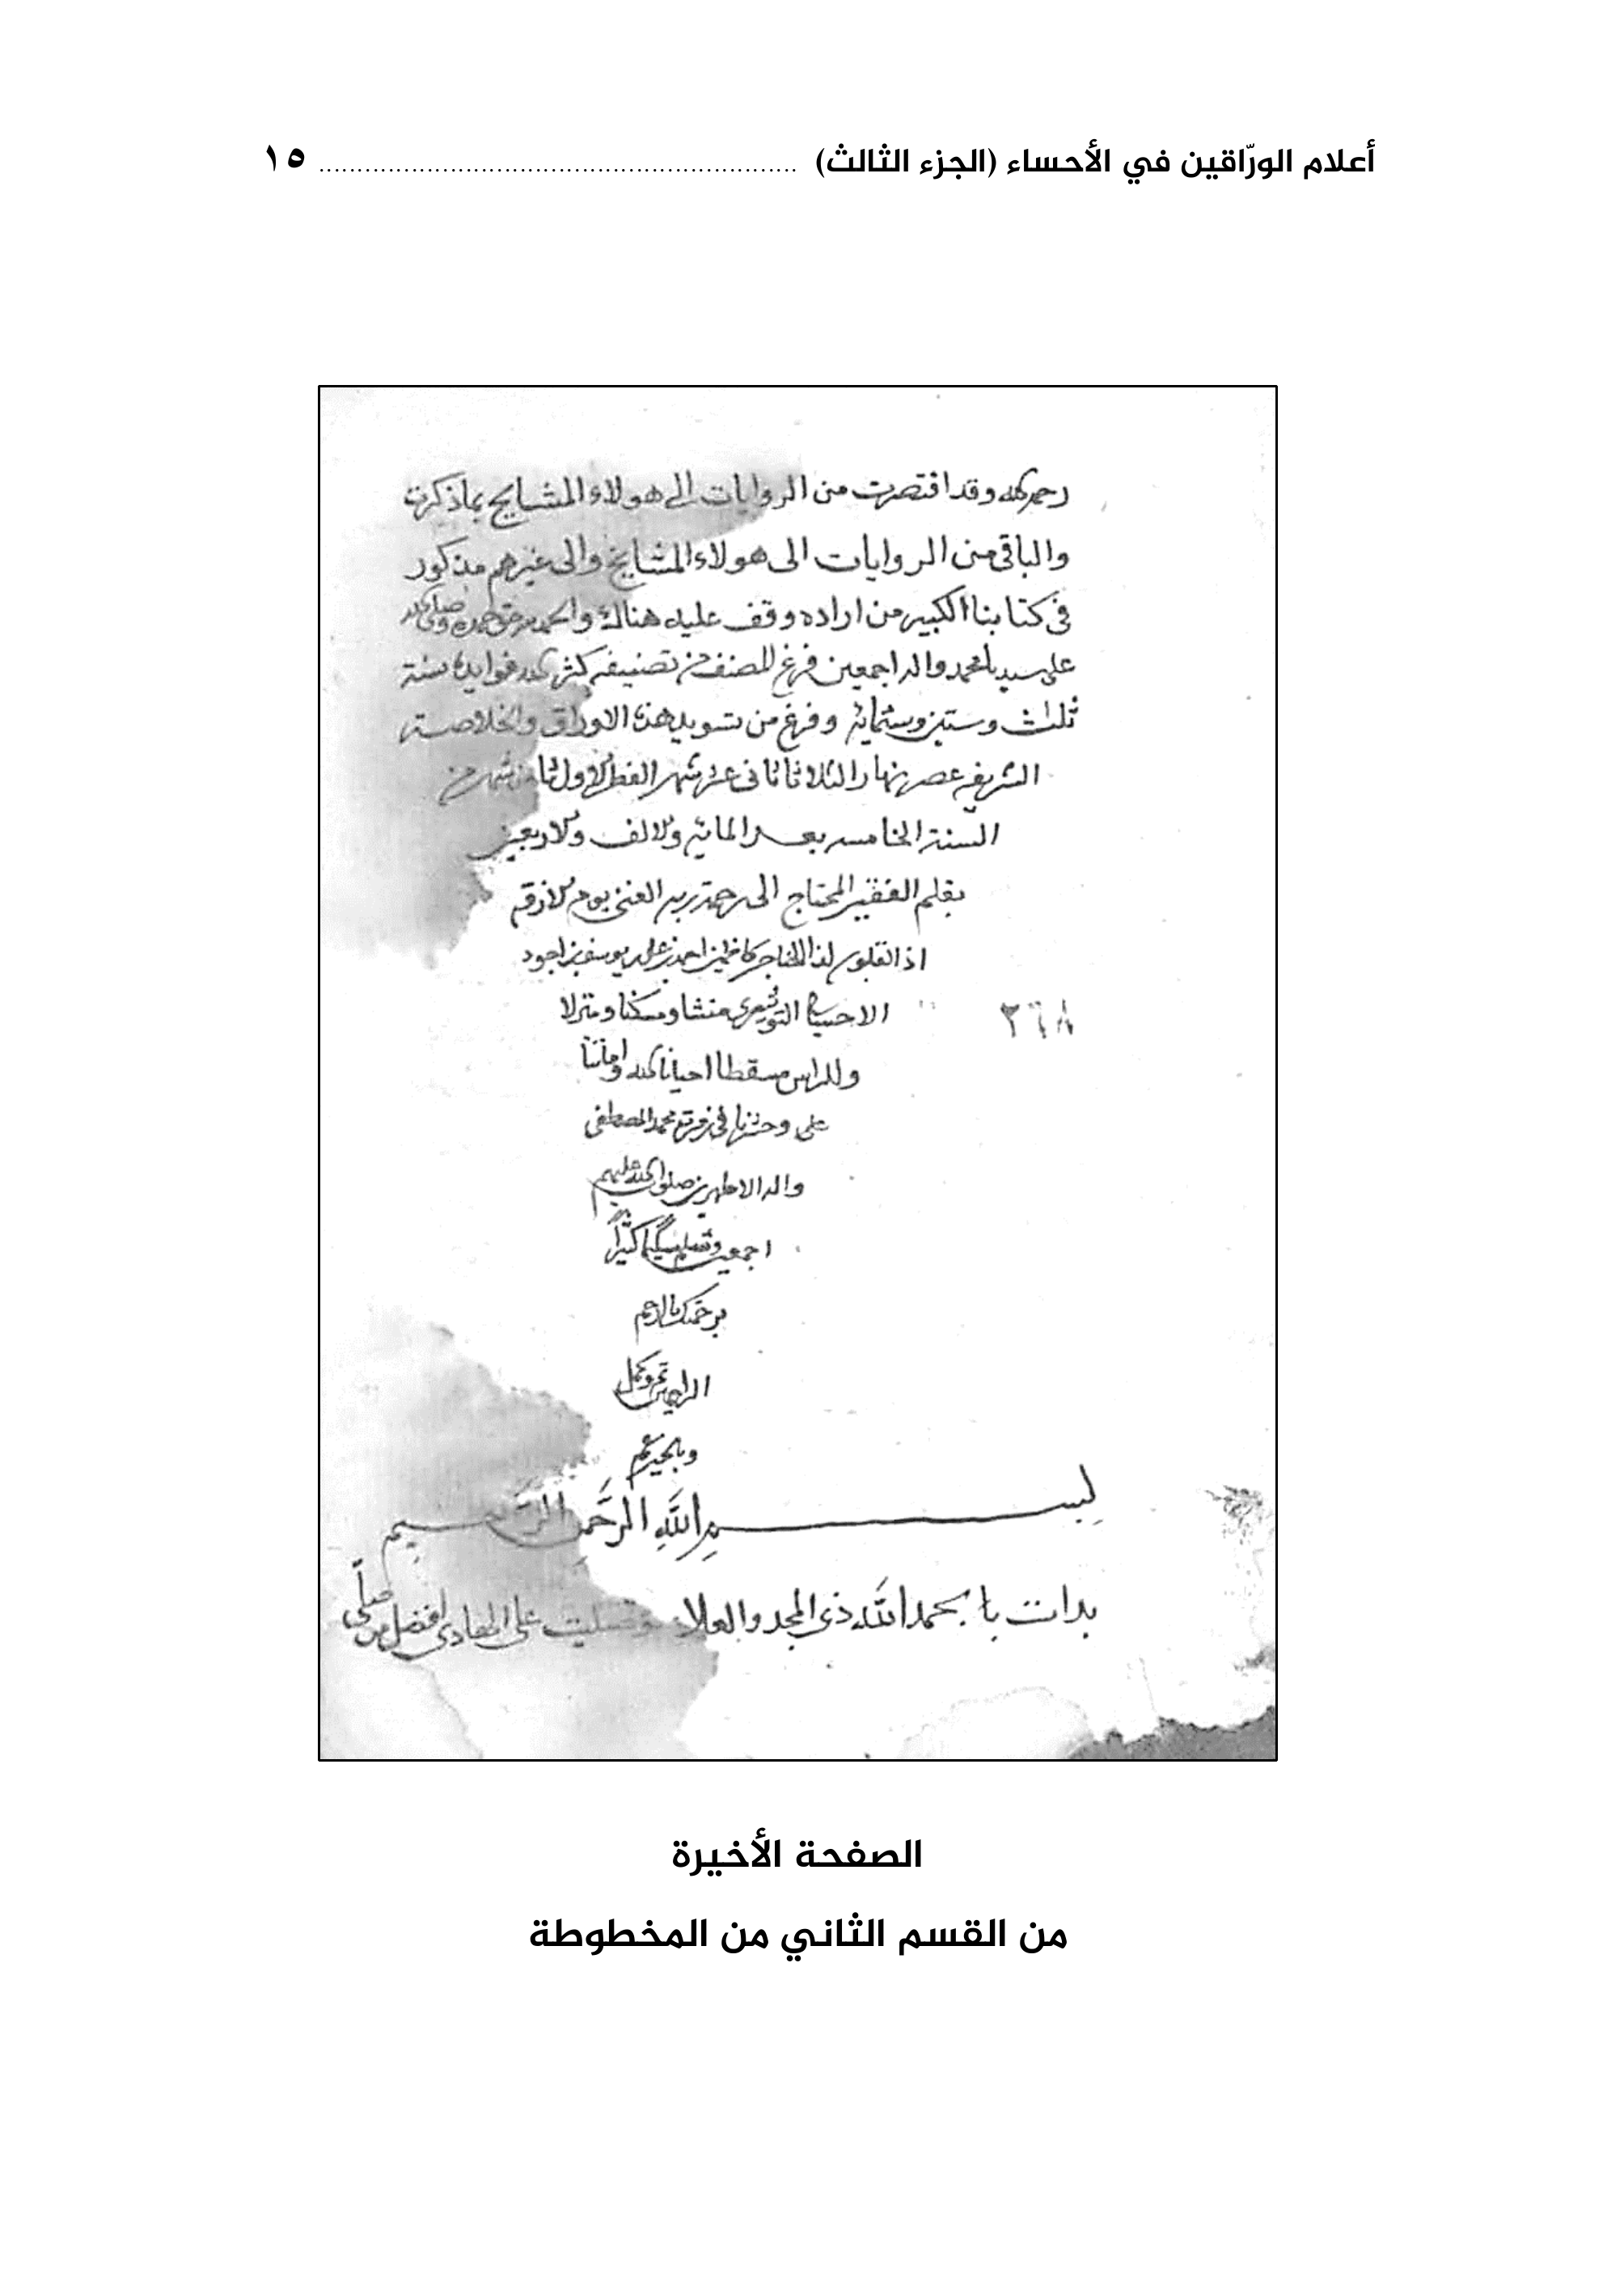 أعلام الورّاقين في الأحساء (الجزء الثالث) ............................................................ ١٥
رحمه الله وقد اقتصرت من الروايات الى هولاء المشايخ بماذكرت
والباقى من الروايات الى هولاء المشايخ والى غيرهم مذكور
فى كتابنا الكبير من اراده وقف عليه هناك والحمد لله حق حمده وصلى الله
على سيدنا محمد واله اجمعين فرغ المصنف من تصنيفه كثر الله فوايده سنة
ثلث وستين وستمائة وفرغ من تسويد هذه الاوراق والخلاصة
الشريفه عصر نهار الثلاثا ثانى عشر شهر
السنة الخامسه بعد المائه والالف والاربعين
بقلم الفقير المحتاج الى رحمة ربه الغنى يوم الازفه
اذ القلوب لدا الحناجر كاظمين احمد بن على بن يوسف بن اجود
الاحسائى منشا ومسكنا ومنزلا
٣٦٨
وللراس مسقطا احيانا الله واماتنا
على وحشرنا فى زمرة محمد المصطفى
واله الاطهرين صلوات الله عليهم
اجمعين وسلم تسليما كثيراً
برحمتك يا ارحم
الراحمين تم وكمل
وبالخير عم
بِسم اللَّهِ الرَّحمنِ الرَّحيم
بدات با بحمد اللَّه ذى المجد والعلا وصليت على الهادى افضل من صلّى
الصفحة الأخيرة
من القسم الثاني من المخطوطة